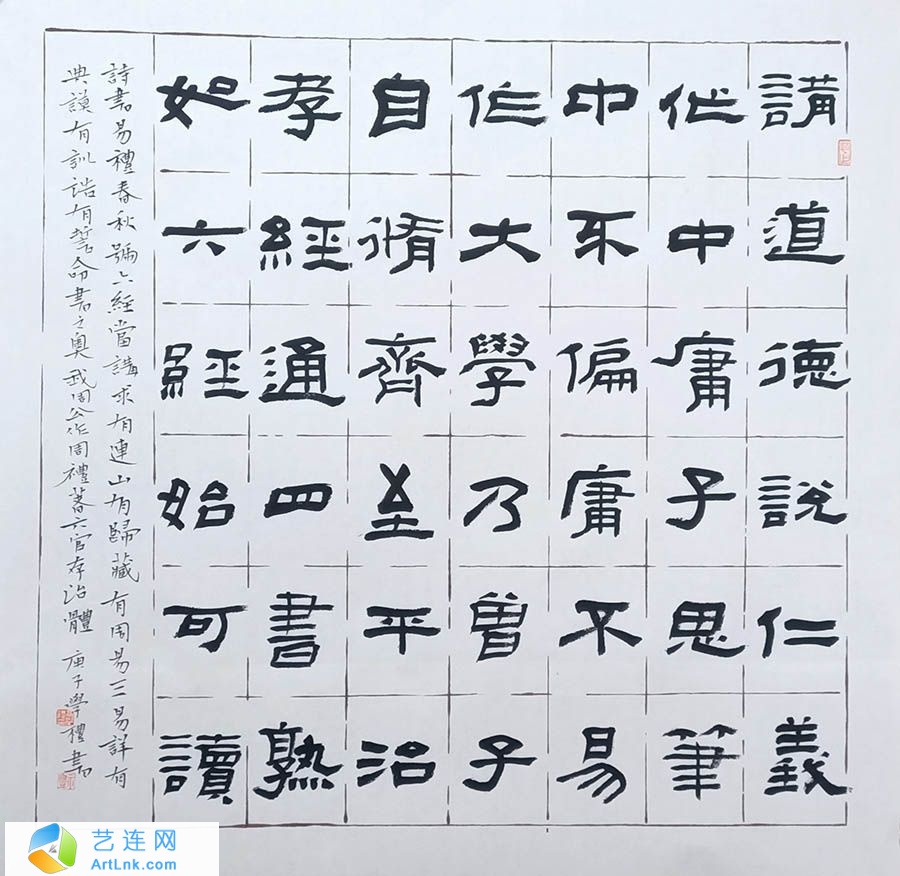 講道德說仁義
作中庸子思筆
中不偏庸不易
作大學乃曾子
自脩齊至平治
孝經通四書熟
如六經始可讀
詩書易禮春秋號六經當講求有連山有歸藏有周易三易詳有
典謨有訓誥有誓命書之奧我周公作周禮著六官存治體 庚子學禮書
艺连网
ArtLnk.com